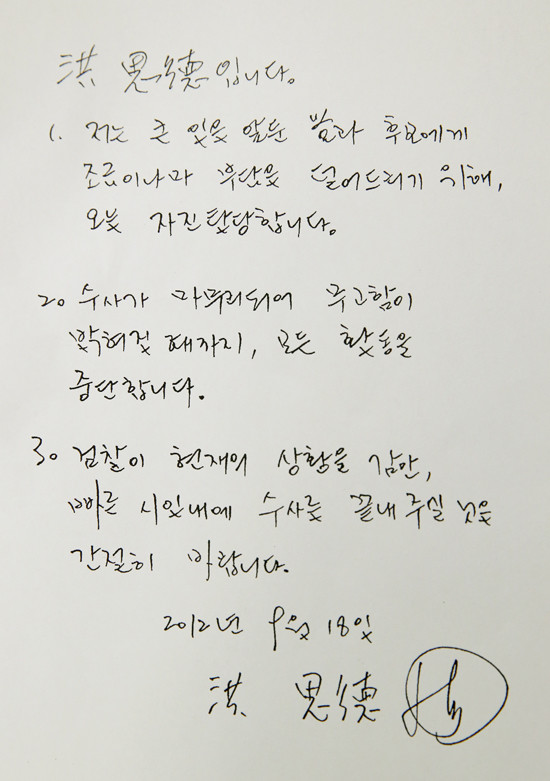 洪 思德입니다.
1. 저는 큰 일을 앞둔 당과 후보에게
조금이나마 부담을 덜어드리기 위해,
오늘 자진탈당합니다.
2. 수사가 마무리되어 무고함이
밝혀질 때까지, 모든 활동을
중단합니다.
3. 검찰이 현재의 상황을 감안,
빠른 시일내에 수사를 끝내 주실 것을
간절히 바랍니다.
2012년 9월 18일
洪 思德